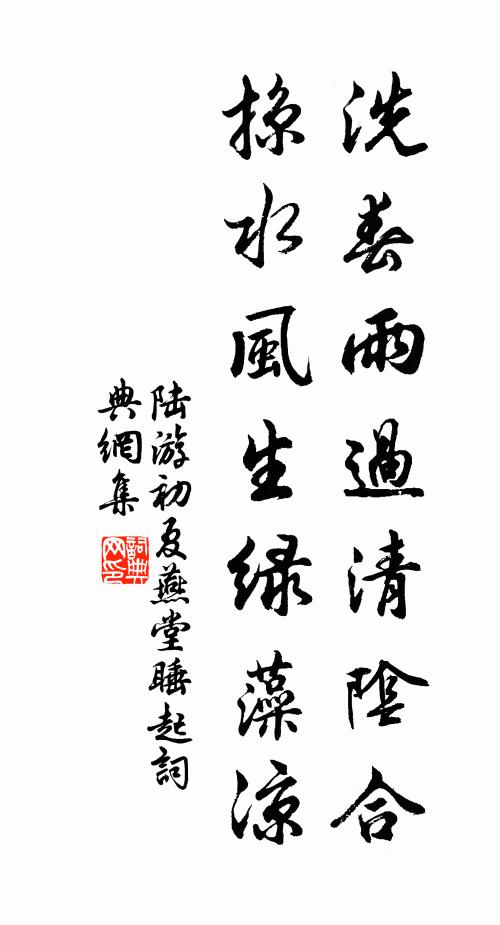 洗春雨過清陰合
掠水風生绿藻凉
陆游初夏燕堂睡起詞
典網集
詞典
网印